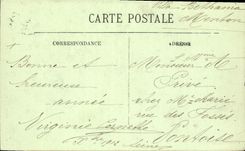 Villa Béthania
Menton
CARTE POSTALE
CORRESPONDANCE
ADRESSE
Bonne et
heureuse
année
Virginie
Monsieur
Privé
chez Mr Marie
rue des Fossés
Pontoise